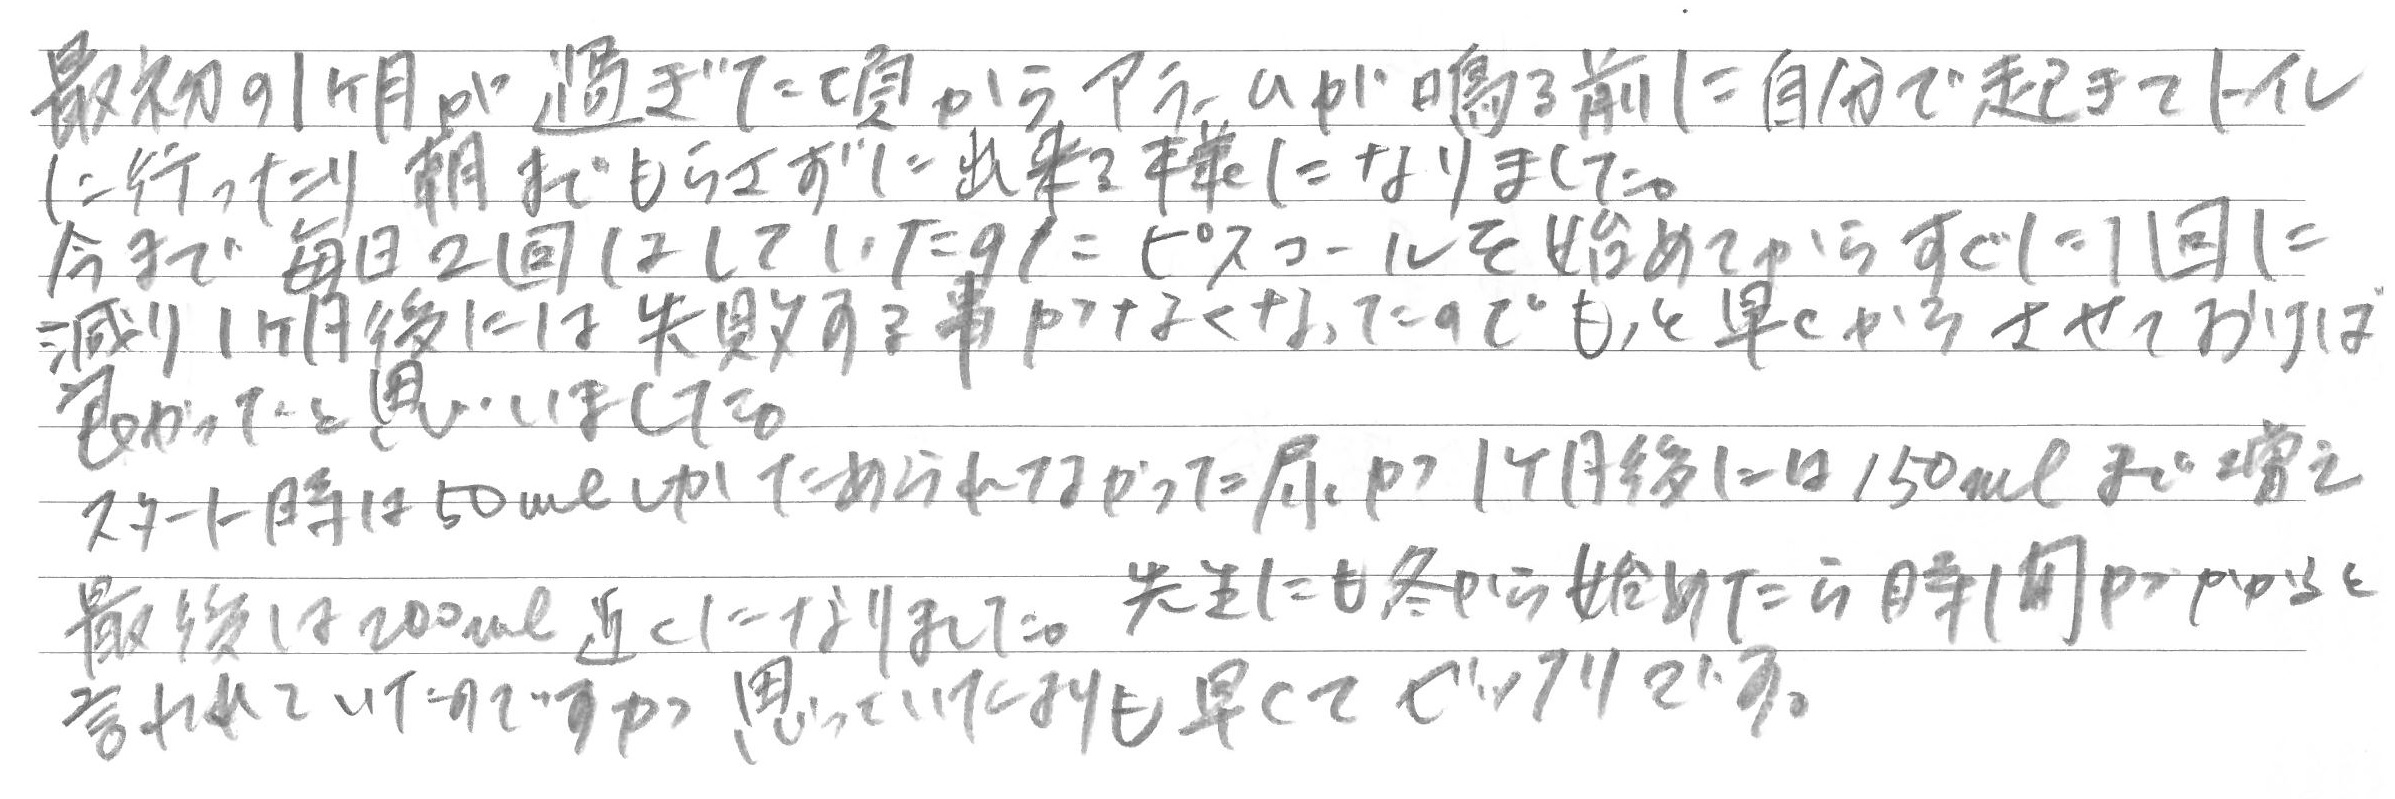 最初の1ヶ月が過ぎた頃からアラームが鳴る前に自分で起きてトイレ
に行ったり朝までもらさずに出来る様になりました。
今まで毎日2回はしていたのにピスコールを始めてからすぐに1回に
減り1ヶ月後には失敗する事がなくなったのでもっと早くからさせておけば
良かったと思いました。
スタート時は50mlしかためられてなかった尿が1ケ月後には150mlまで増え
最後は200ml近くになりました。先生にも冬から始めたら時間がかかると
言われていたのですが思っていたよりも早くてビックリです。